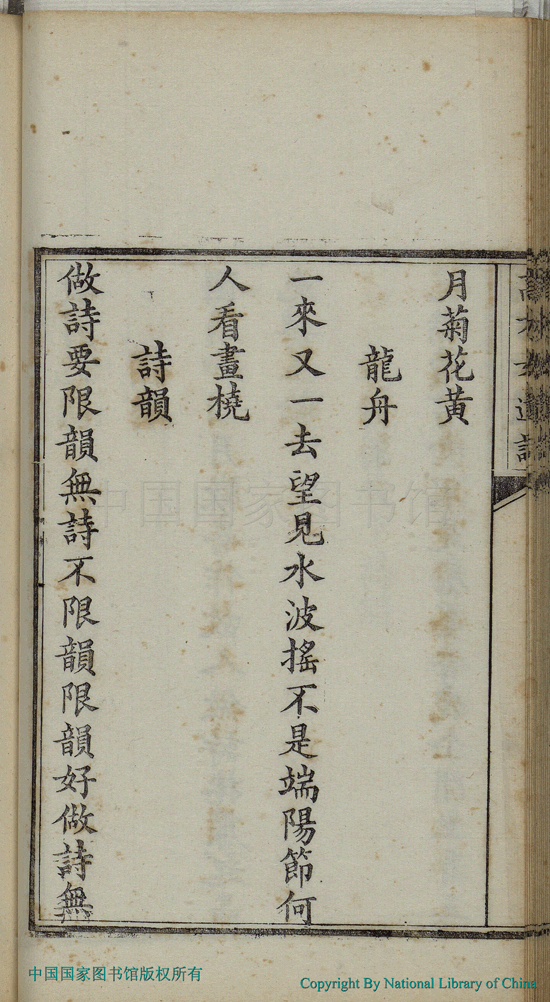 月菊花黃
龍舟
一來又一去望見水波搖不是端陽節何
人看畫橈
詩韻
做詩要限韻無詩不限韻限韻好做詩無
中国国家图书馆
中国国家图书馆版权所有
Copyright By National Library of China